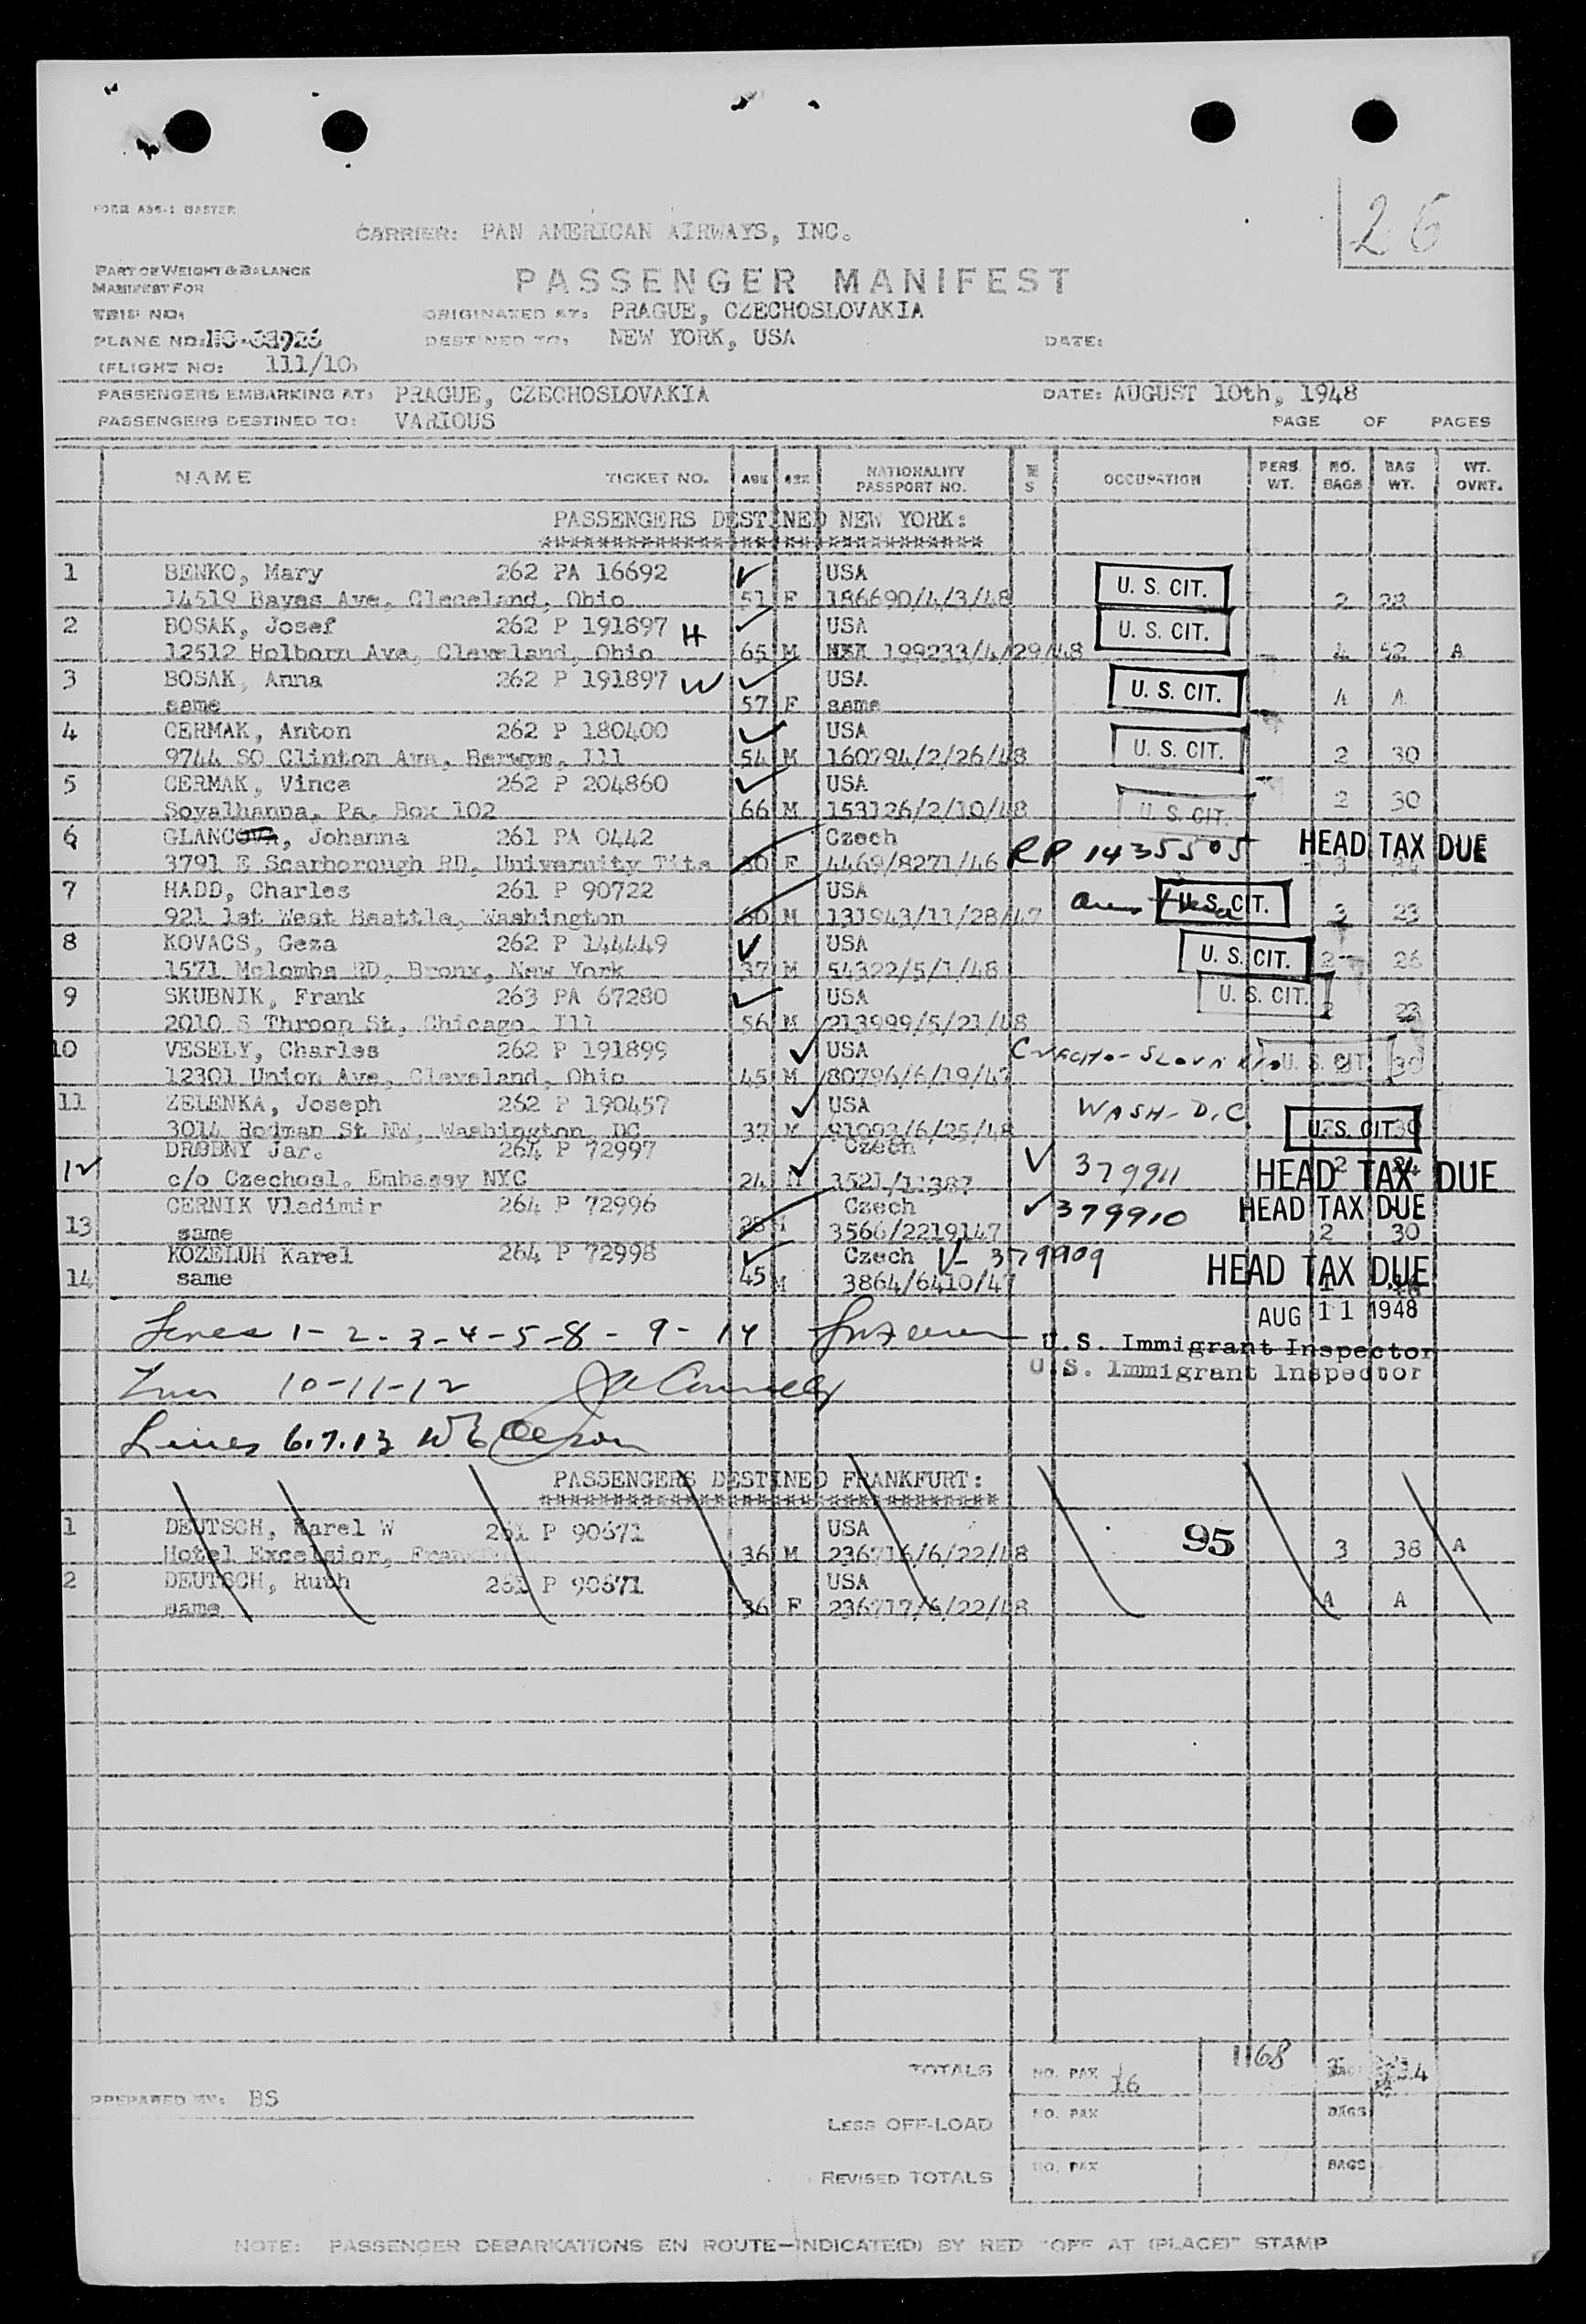 FORM A86-1 MASTER
26
CARRIER: PAN AMERICAN AIRWAYS, INC.
PART OF WEIGHT & BALANCE
MANIFEST FOR
PASSENGER MANIFEST
TRIP NO:
ORIGINATED AT: PRAGUE, CZECHOSLOVAKIA
PLANE NO:
DESTINED TO: NEW YORK, USA
DATE:
(FLIGHT NO: 111/10
PASSENGERS EMBARKING AT: PRAGUE, CZECHOSLOVAKIA DATE: AUGUST 10th, 1948
PASSENGERS DESTINED TO: VARIOUS PAGE OF PAGES
NAME TICKET NO. AGE SEX NATIONALITY PASSPORT NO. OCCUPATION PERS. WT. NO. BAGS BAG WT. WT. OVNT.
PASSENGERS DESTINED NEW YORK:
1 BENKO, Mary 262 PA 16692 USA U. S. CIT.
14519 Bayes Ave, Cleceland, Ohio 51 F 186690/4/3/48 2 28
2 BOSAK, Josef 262 P 191897 H USA U. S. CIT.
12512 Holborn Ave, Cleveland, Ohio 65 M 199233/4/29/48 4 52 A
3 BOSAK, Anna 262 P 191897 W USA U. S. CIT.
same 57 F same A A
4 CERMAK, Anton 262 P 180400 USA U. S. CIT.
9744 SO Clinton Ave, Berwyn, Ill 54 M 160794/2/26/48 2 30
5 CERMAK, Vince 262 P 204860 USA U. S. CIT.
Sovalhanna, Pa, Box 102 66 M 153126/2/10/48 2 30
6 GLANCOVA, Johanna 261 PA 0442 Czech RP 1435505 HEAD TAX DUE
3791 E Scarborough RD, University Tits 30 F 4469/8271/46 3
7 HADD, Charles 261 P 90722 USA U. S. CIT.
921 1st West Seattle, Washington 60 M 131943/11/28/47 3 23
8 KOVACS, Geza 262 P 144449 USA U. S. CIT.
1571 Melombs RD, Bronx, New York 37 M 54322/5/1/48 2 26
9 SKUBNIK, Frank 263 PA 67280 USA U. S. CIT.
2010 S Throop St, Chicago, Ill 56 M 213999/5/21/48 2
10 VESELY, Charles 262 P 191899 USA CZECHO-SLOVAKIA U. S. CIT.
12301 Union Ave, Cleveland, Ohio 45 M 80796/6/19/47 30
11 ZELENKA, Joseph 262 P 190457 USA WASH-D.C. U. S. CIT.
3014 Rodman St NW, Washington, DC 37 M 91093/6/25/48 30
12 DROBNY Jar. 264 P 72997 Czech 379911 HEAD TAX DUE
c/o Czechosl. Embassy NYC 24 M 3521/11387 2 24
13 CERNIK Vladimir 264 P 72996 Czech 379910 HEAD TAX DUE
same 28 M 3566/2219147 2 30
14 KOZELUH Karel 264 P 72998 Czech 379909 HEAD TAX DUE
same 45 M 3864/6410/47
AUG 11 1948
Lines 1-2-3-4-5-8-9-14 U.S. Immigrant Inspector
U.S. Immigrant Inspector
Lines 10-11-12
Lines 6.7.13
PASSENGERS DESTINED FRANKFURT:
1 DEUTSCH, Karel W 261 P 90671 USA 95
Hotel Excelsior, 36 M 236716/6/22/48 3 38 A
2 DEUTSCH, Ruth 261 P 90671 USA
same 36 F 236717/6/22/48 A A
TOTALS NO. PAX 16 1168 BAGS
PREPARED BY: BS
LESS OFF-LOAD NO. PAX BAGS
REVISED TOTALS NO. PAX BAGS
NOTE: PASSENGER DEBARKATIONS EN ROUTE-INDICATE(D) BY RED "OFF AT (PLACE)" STAMP